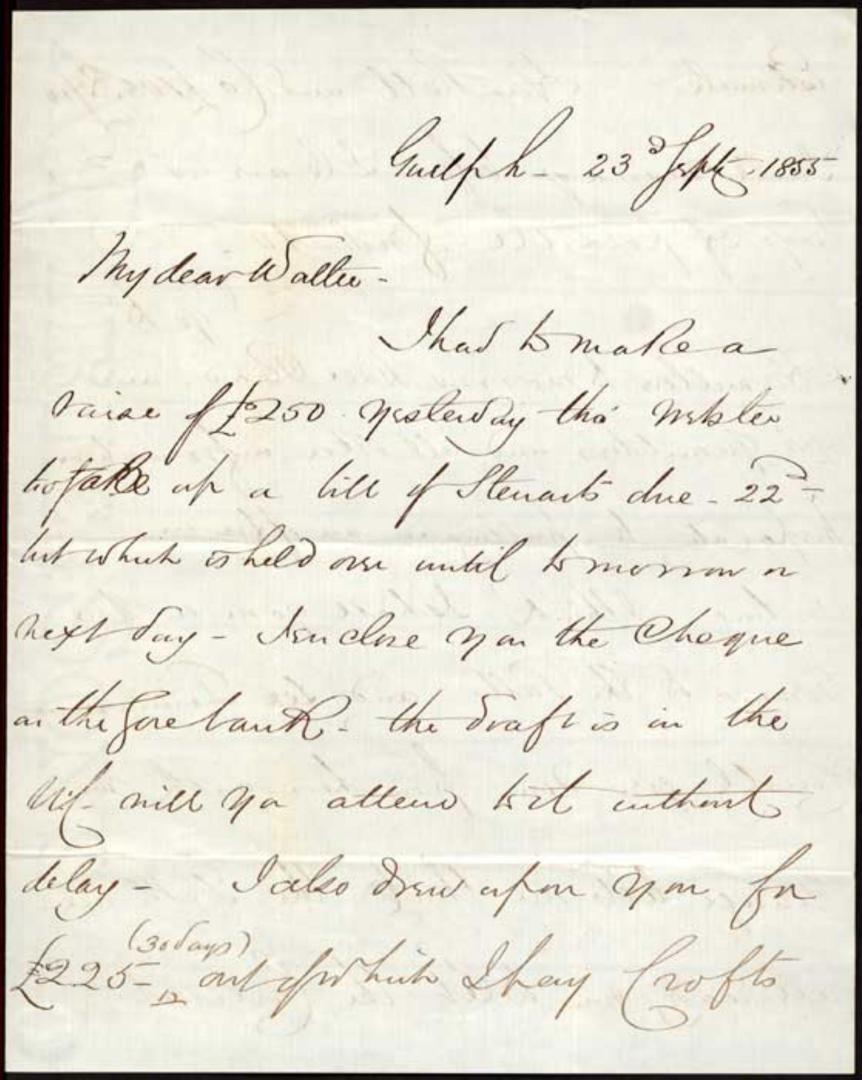 Guelph - 23d Sept. 1855
My dear Walter -
I had to make a
raise of £250 yesterday tho' Webster
to take up a bill of Stewarts due - 22d -
but which is held over until tomorrow or
next day - I enclose you the Cheque
on the Gore bank - the draft is in the
UC - will you attend to it without
delay - I also drew upon you for
(30 days)
£225 - out of which I pay Crofts